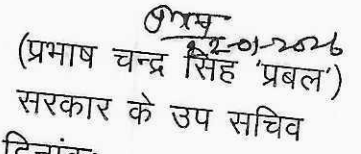 22-01-2026
(प्रभाष चन्द्र सिंह 'प्रबल')
सरकार के उप सचिव
दिनांक